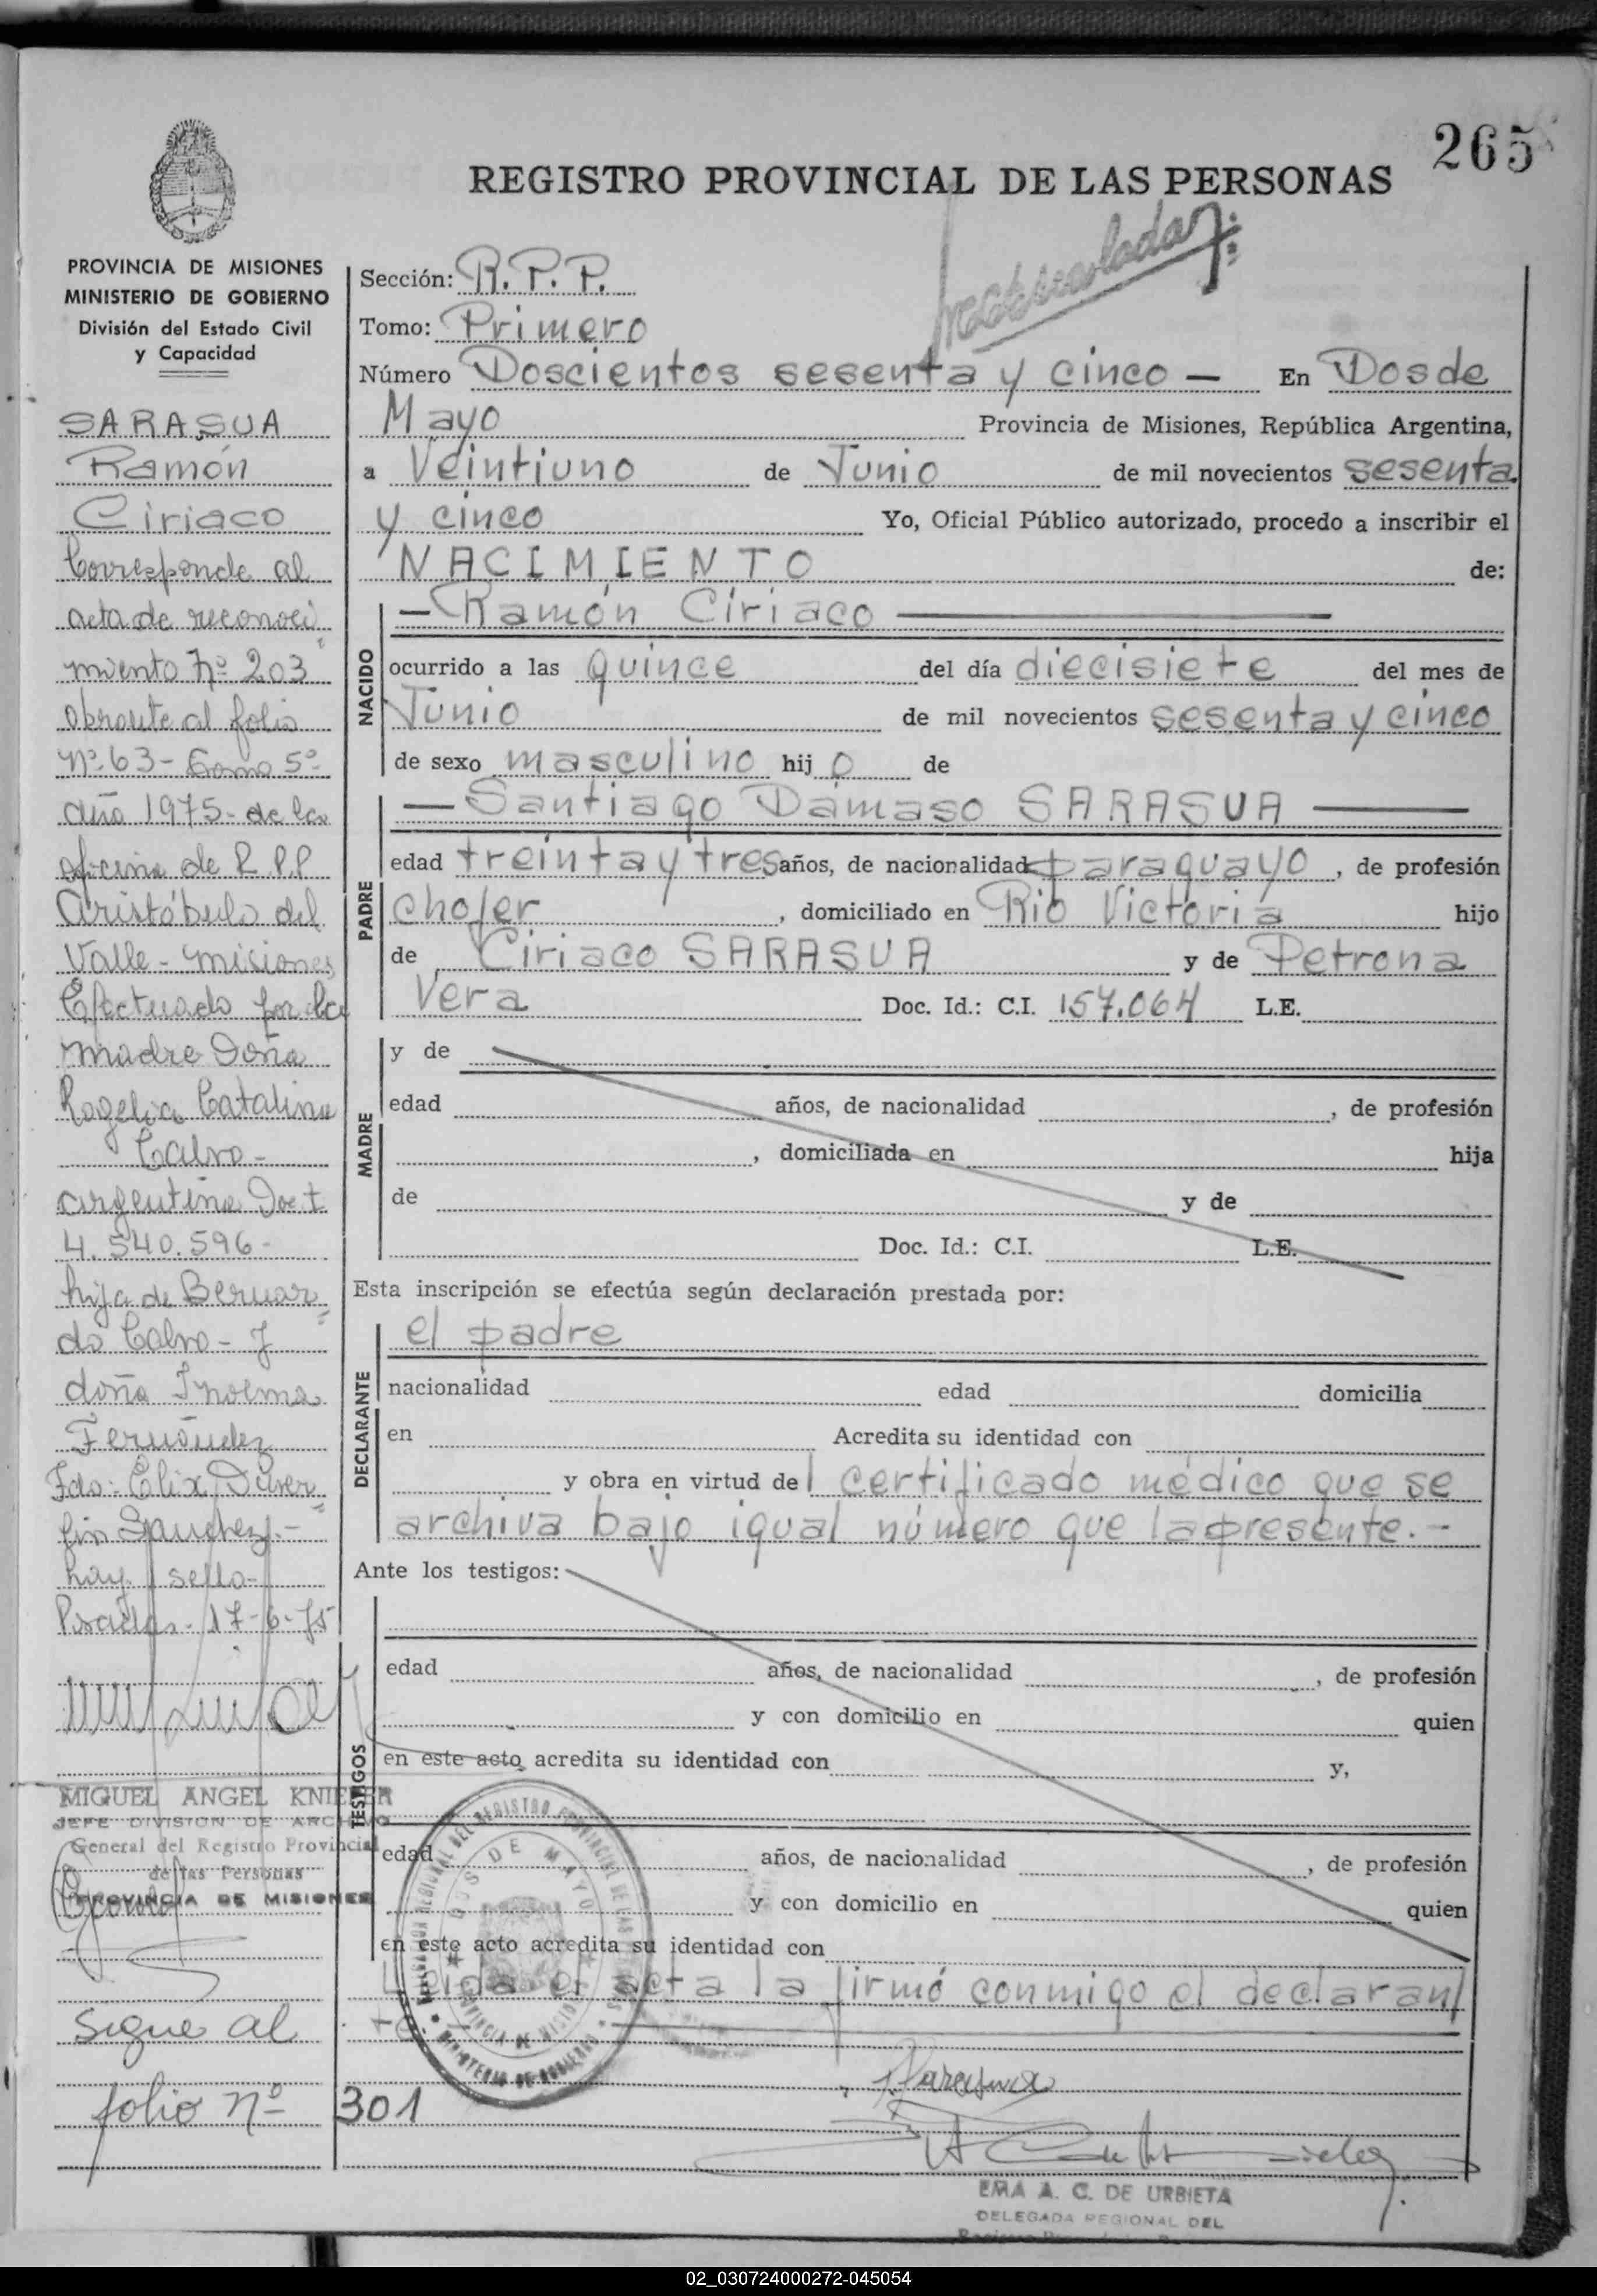 265
REGISTRO PROVINCIAL DE LAS PERSONAS
PROVINCIA DE MISIONES
MINISTERIO DE GOBIERNO
División del Estado Civil
y Capacidad
SARASUA
Ramón
Ciriaco
Corresponde al
acta de reconoci
miento nº 203
obrante al folio
nº 63 - Tomo 5º
año 1975 - de la
oficina de R.P.P
Aristóbulo del
Valle - Misiones
Efectuado por la
madre Doña
Rogelia Catalina
Calvo -
argentina Doc t.
4.540.596 -
hija de Bernar
do Calvo - y
doña
Fernández
Fdo:
Sanchez. -
hay sello -
Posadas - 17-6-75
MIGUEL ANGEL KNIEPER
JEFE DIVISION DE ARCHIVO
General del Registro Provincial
de las Personas
PROVINCIA DE MISIONES
Sigue al
folio nº 301
Sección: R.P.P.
Tomo: Primero
Número Doscientos sesenta y cinco — En Dos de
Mayo Provincia de Misiones, República Argentina,
a Veintiuno de Junio de mil novecientos sesenta
y cinco Yo, Oficial Público autorizado, procedo a inscribir el
NACIMIENTO de:
NACIDO
— Ramón Ciriaco —
ocurrido a las quince del día diecisiete del mes de
Junio de mil novecientos sesenta y cinco
de sexo masculino hij o de
PADRE
— Santiago Dámaso SARASUA —
edad treinta y tres años, de nacionalidad paraguayo, de profesión
chofer, domiciliado en Río Victoria hijo
de Ciriaco SARASUA y de Petrona
Vera Doc. Id.: C.I. 157.064 L.E.
MADRE
y de
edad años, de nacionalidad , de profesión
, domiciliada en hija
de y de
Doc. Id.: C.I. L.E.
Esta inscripción se efectúa según declaración prestada por:
DECLARANTE
el padre
nacionalidad edad domicilia
en Acredita su identidad con
y obra en virtud del certificado médico que se
archiva bajo igual número que la presente. -
Ante los testigos:
TESTIGOS
edad años, de nacionalidad , de profesión
y con domicilio en quien
en este acto acredita su identidad con y,
edad años, de nacionalidad , de profesión
y con domicilio en quien
en este acto acredita su identidad con
Leída el acta la firmó conmigo el declaran
te. —
DOS DE MAYO
MINISTERIO DE GOBIERNO
EMA A. C. DE URBIETA
DELEGADA REGIONAL DEL
02_030724000272-045054